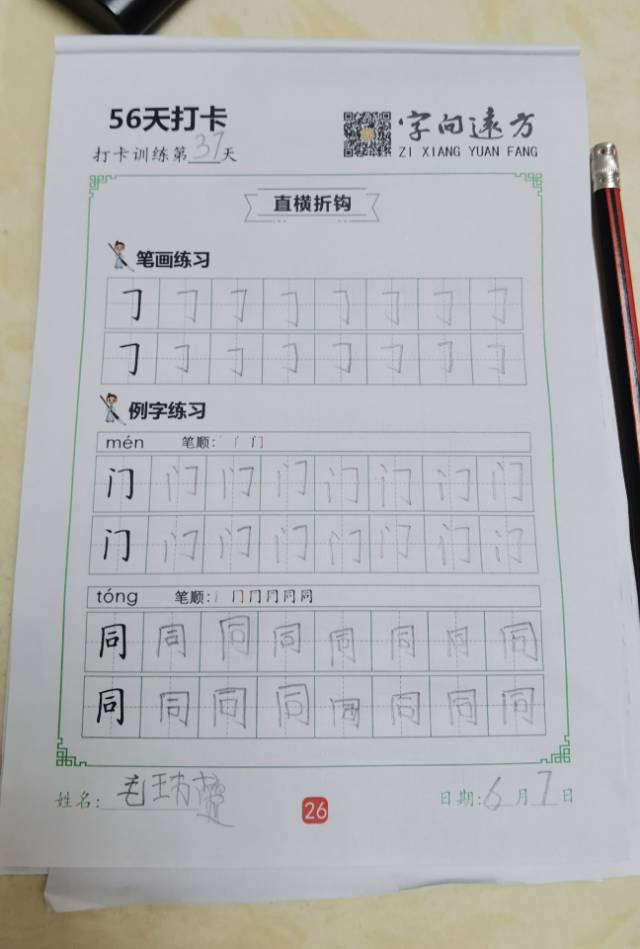 56天打卡
字向远方
打卡训练第37天
ZI XIANG YUAN FANG
直横折钩
笔画练习
㇆ ㇆ ㇆ ㇆ ㇆ ㇆ ㇆ ㇆
㇆ ㇆ ㇆ ㇆ ㇆ ㇆ ㇆ ㇆
例字练习
mén 笔顺: 丶 冫 门
门 门 门 门 门 门 门 门
门 门 门 门 门 门 门 门
tóng 笔顺:丨 冂 冂 冃 同 同
同 同 同 同 同 同 同 同
同 同 同 同 同 同 同 同
姓名: 毛
26
日期:6月7日